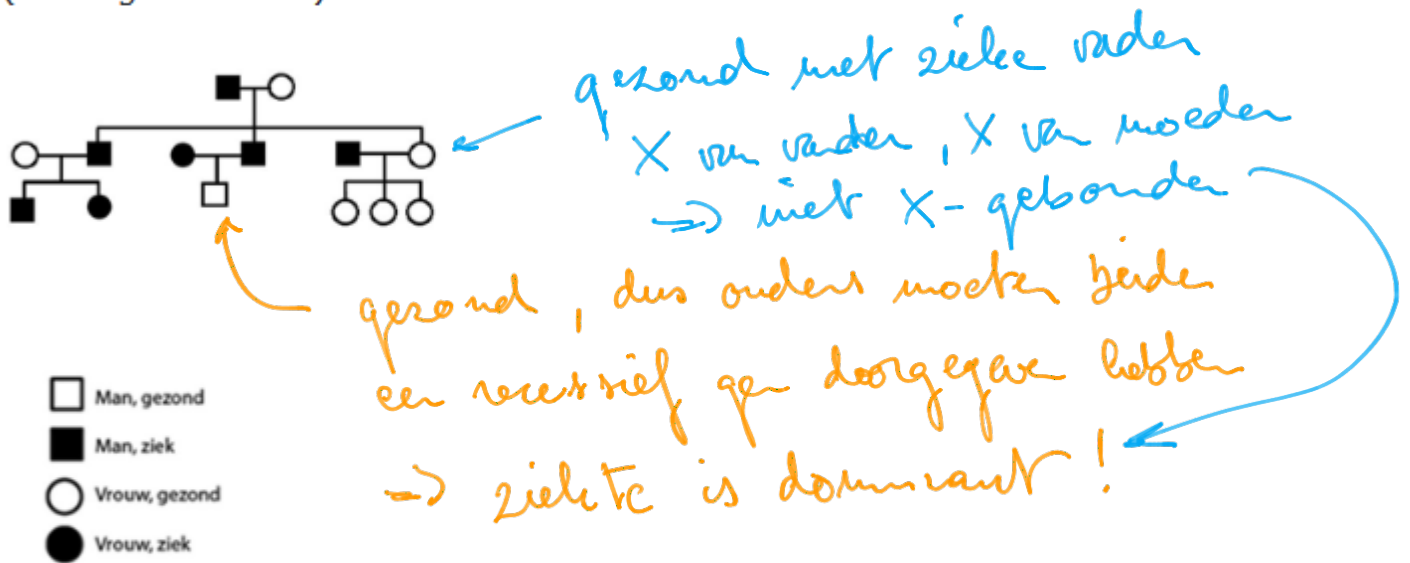 gezond met zieke vader
X van vader, X van moeder
=> niet X-gebonden
gezond, dus ouders moeten beiden
een recessief gen doorgegeven hebben
=> ziekte is dominant!
Man, gezond
Man, ziek
Vrouw, gezond
Vrouw, ziek